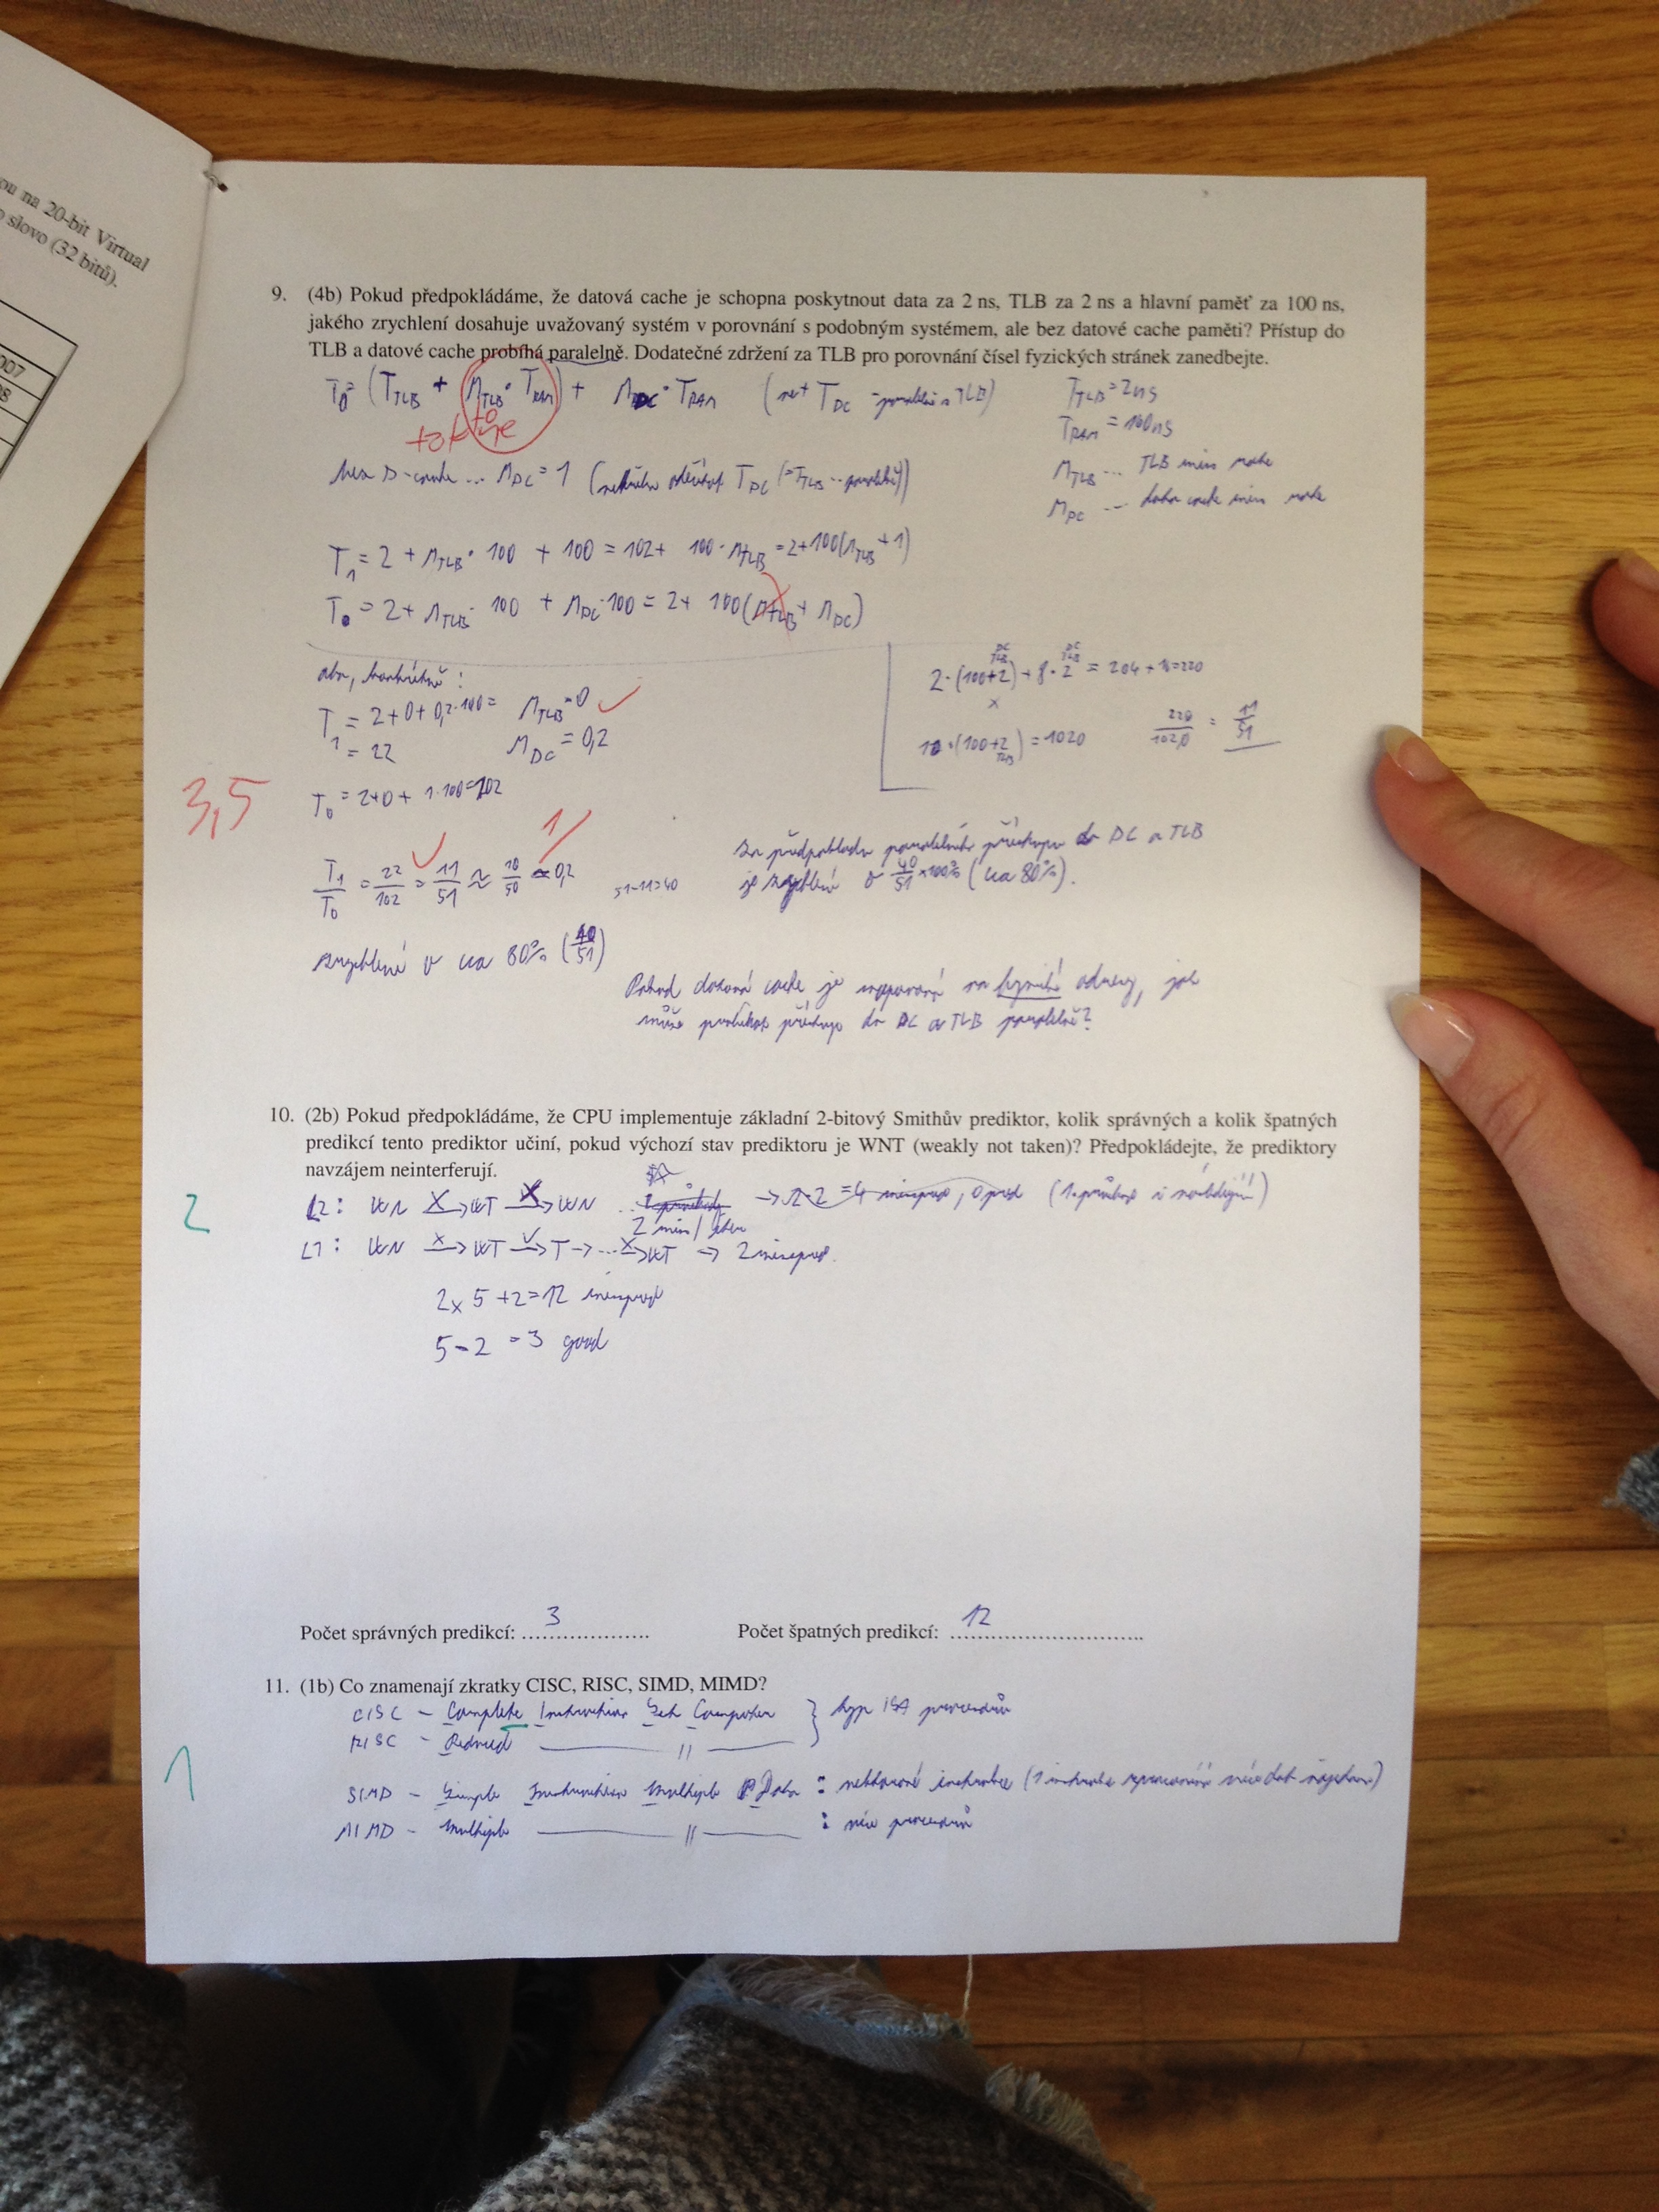 ou na 20-bit Virtual
slovo (32 bitů).
007
9. (4b) Pokud předpokládáme, že datová cache je schopna poskytnout data za 2 ns, TLB za 2 ns a hlavní paměť za 100 ns,
jakého zrychlení dosahuje uvažovaný systém v porovnání s podobným systémem, ale bez datové cache paměti? Přístup do
TLB a datové cache probíhá paralelně. Dodatečné zdržení za TLB pro porovnání čísel fyzických stránek zanedbejte.
T_TLB = 2ns
T_RAM = 100ns
M_TLB ... TLB miss rate
M_DC ... data cache miss rate
T_1 = 2 + M_TLB · 100 + 100 = 102 + 100 · M_TLB = 2 + 100(M_TLB + 1)
T_0 = 2 + M_TLB · 100 + M_DC · 100 = 2 + 100(M_TLB + M_DC)
T_1 = 2+0+0,2·100= M_TLB = 0
= 22 M_DC = 0,2
2·(100+2)+8·2 = 204+16=220
10·(100+2) = 1020 220/1020 = 11/51
T_0 = 2+0+1·100=102
3,5
T_1/T_0 = 22/102 = 11/51 ≈ 10/50 ≈ 0,2 51-11=40
Za předpokladu paralelního přístupu do DC a TLB
je zrychlení o 40/51 ×100% (cca 80%).
zrychlení o cca 80% (40/51)
Pokud datová cache je mapovaná na fyzické adresy, jak
může probíhat přístup do DC a TLB paralelně?
10. (2b) Pokud předpokládáme, že CPU implementuje základní 2-bitový Smithův prediktor, kolik správných a kolik špatných
predikcí tento prediktor učiní, pokud výchozí stav prediktoru je WNT (weakly not taken)? Předpokládejte, že prediktory
navzájem neinterferují.
2
L2: WN X→ WT X→ WN
L1: WN x→ WT √→ T → ... x→ WT → 2 misspred.
2 x 5 + 2 = 12 misspred
5 - 2 = 3 good
Počet správných predikcí: 3 Počet špatných predikcí: 12
11. (1b) Co znamenají zkratky CISC, RISC, SIMD, MIMD?
CISC - Complete Instruction Set Computer } typ ISA procesorů
RISC - Reduced —— // ——
1
SIMD - Simple Instruction Multiple Data : vektorové instrukce (1 instrukce zpracovává více dat najednou)
MIMD - Multiple —— // —— : více procesorů